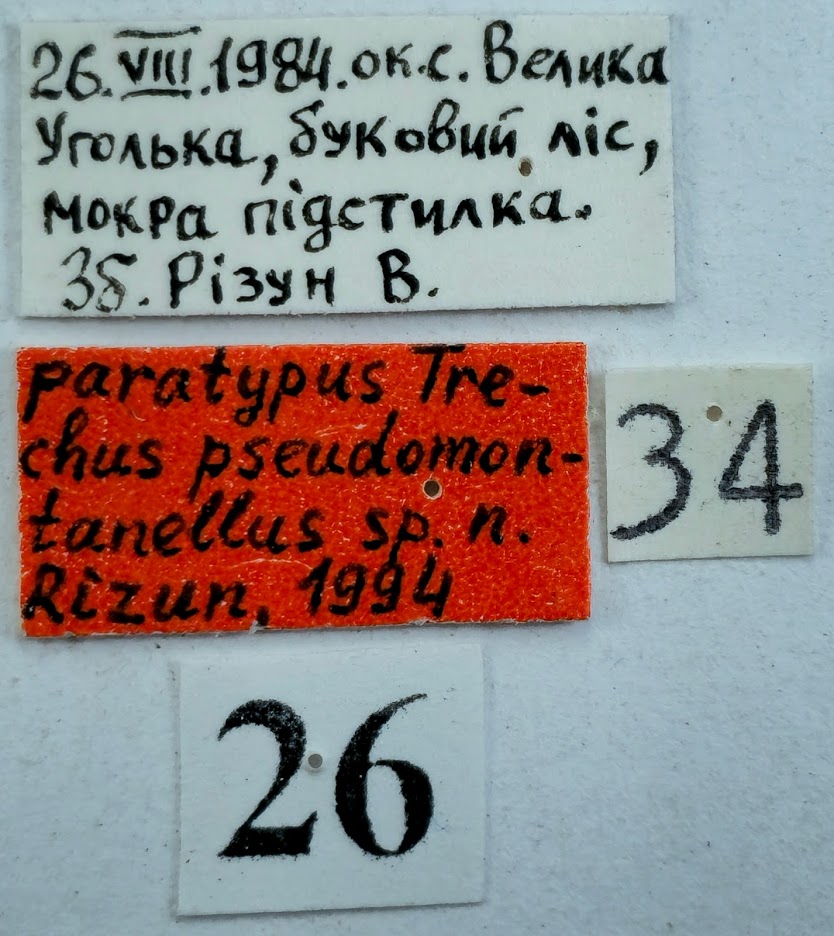 26.VIII.1984.ок.с.Велика
Уголька, буковий ліс,
мокра підстилка.
Зб. Різун В.
paratypus Tre-
chus pseudomon-
tanellus sp. n.
Rizun, 1994
34
26